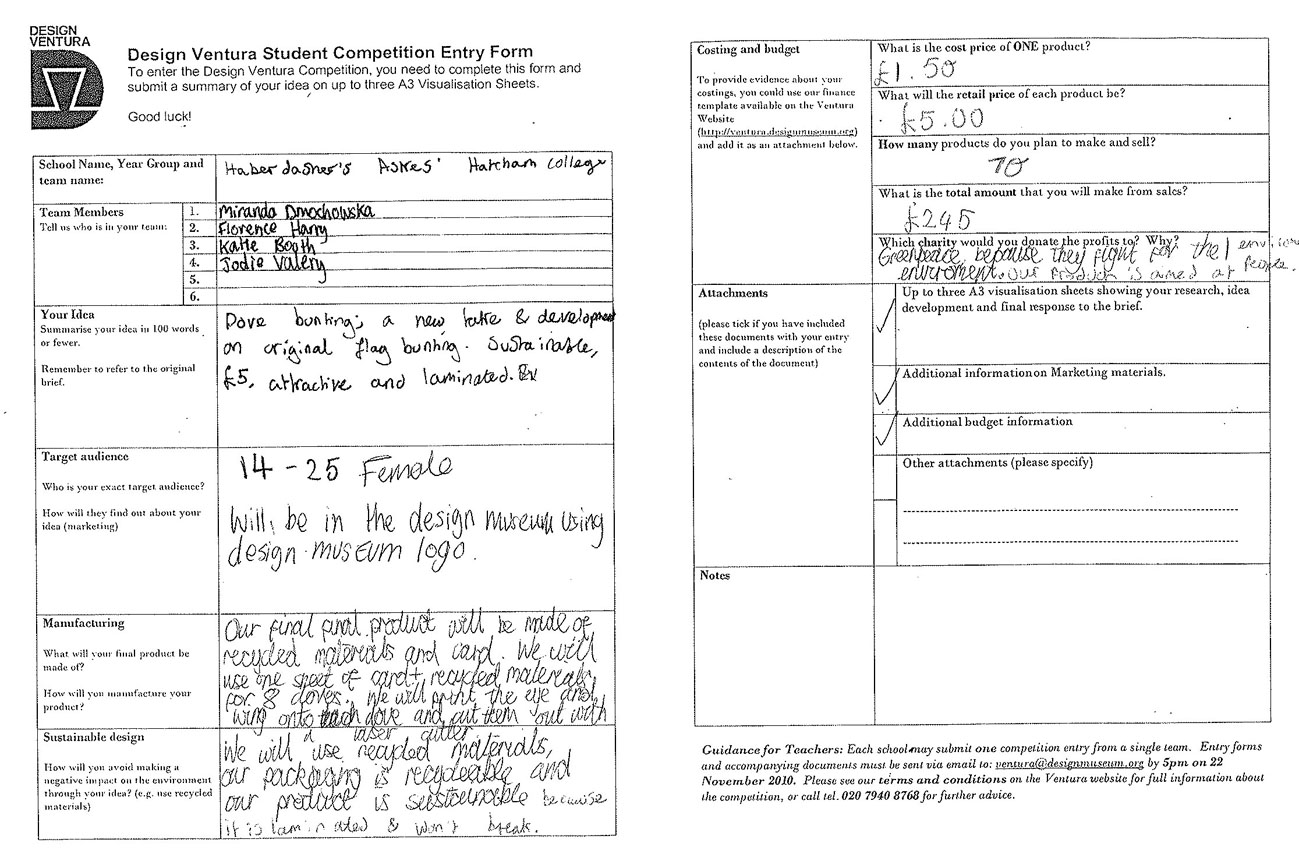 DESIGN
VENTURA
Design Ventura Student Competition Entry Form
To enter the Design Ventura Competition, you need to complete this form and
submit a summary of your idea on up to three A3 Visualisation Sheets.
Good luck!
School Name, Year Group and
team name:
Haberdasher's Askes' Hatcham College
Team Members
Tell us who is in your team:
1. Miranda Dmochowska
2. Florence Harry
3. Katie Booth
4. Jodie Valery
5.
6.
Your Idea
Summarise your idea in 100 words
or fewer.
Remember to refer to the original
brief.
Dove bunting; a new take & development
on original flag bunting. Sustainable,
£5, attractive and laminated.
Target audience
Who is your exact target audience?
How will they find out about your
idea (marketing)
14 - 25 Female
Will be in the design museum using
design museum logo.
Manufacturing
What will your final product be
made of?
How will you manufacture your
product?
Our final final product will be made of
recycled materials and card. We will
use one sheet of card + recycled materials
for 8 doves. We will print the eye and
wing onto each dove and cut them out with
a laser cutter
Sustainable design
How will you avoid making a
negative impact on the environment
through your idea? (e.g. use recycled
materials)
We will use recycled materials,
our packaging is recycleable and
our product is sustainable because
it is laminated & won't break.
Costing and budget
To provide evidence about your
costings, you could use our finance
template available on the Ventura
Website
(http://ventura.designmuseum.org)
and add it as an attachment below.
What is the cost price of ONE product?
£1.50
What will the retail price of each product be?
£5.00
How many products do you plan to make and sell?
70
What is the total amount that you will make from sales?
£245
Which charity would you donate the profits to? Why?
Greenpeace, because they fight for the
enviroment. our product is aimed at people.
Attachments
(please tick if you have included
these documents with your entry
and include a description of the
contents of the document)
Up to three A3 visualisation sheets showing your research, idea
development and final response to the brief.
Additional information on Marketing materials.
Additional budget information
Other attachments (please specify)
Notes
Guidance for Teachers: Each school may submit one competition entry from a single team. Entry forms
and accompanying documents must be sent via email to: ventura@designmuseum.org by 5pm on 22
November 2010. Please see our terms and conditions on the Ventura website for full information about
the competition, or call tel. 020 7940 8768 for further advice.